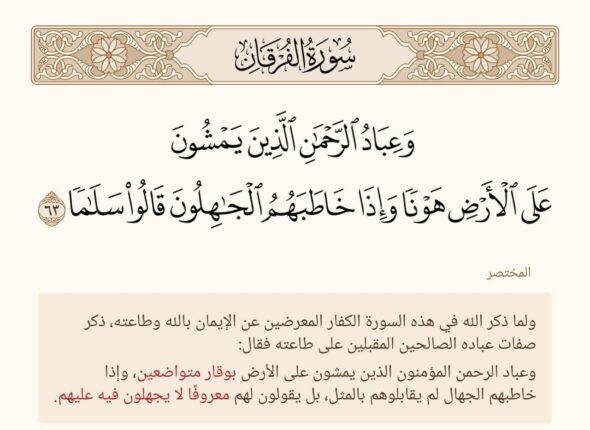 سُورَةُ الفُرۡقَانِ
وَعِبَادُ ٱلرَّحۡمَٰنِ ٱلَّذِينَ يَمۡشُونَ
عَلَى ٱلۡأَرۡضِ هَوۡنٗا وَإِذَا خَاطَبَهُمُ ٱلۡجَٰهِلُونَ قَالُواْ سَلَٰمٗا ٦٣
المختصر
ولما ذكر الله في هذه السورة الكفار المعرضين عن الإيمان بالله وطاعته، ذكر
صفات عباده الصالحين المقبلين على طاعته فقال:
وعباد الرحمن المؤمنون الذين يمشون على الأرض بوقار متواضعين، وإذا
خاطبهم الجهال لم يقابلوهم بالمثل، بل يقولون لهم معروفًا لا يجهلون فيه عليهم.